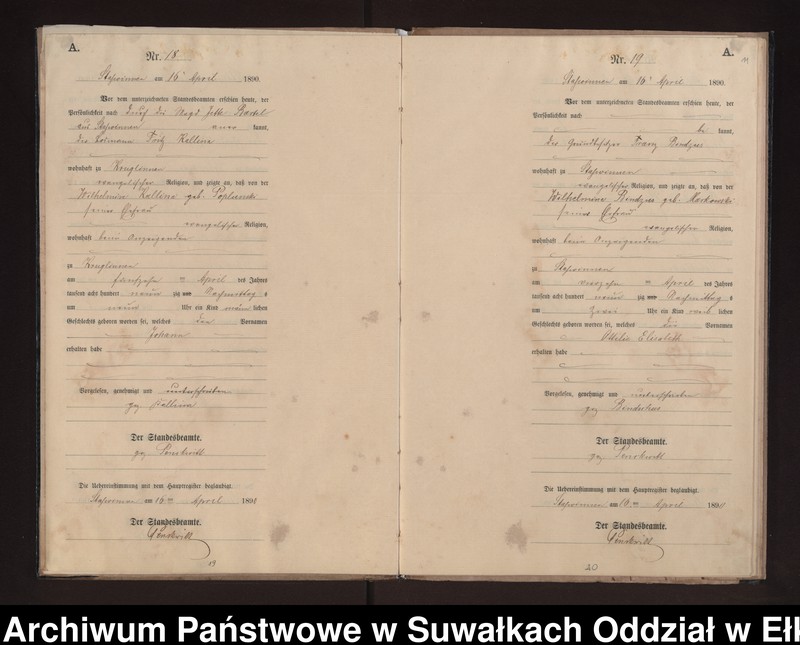 A.
Nr. 18
am 16 April 1890.
Vor dem unterzeichneten Standesbeamten erschien heute, der
Persönlichkeit nach durch die Magd
aus kannt,
der Fritz Kallena
wohnhaft zu
evangelischer Religion, und zeigte an, daß von der
Wilhelmine Kallena geb.
seiner Ehefrau
evangelischer Religion,
wohnhaft beim Anzeigenden
zu
am fünfzehn ten April des Jahres
tausend acht hundert neun zig Nachmittag s
um neun Uhr ein Kind männ lichen
Geschlechts geboren worden sei, welches den Vornamen
Johann
erhalten habe
Vorgelesen, genehmigt und unterschrieben
gez. Kallena
Der Standesbeamte.
gez.
Die Uebereinstimmung mit dem Hauptregister beglaubigt.
am 16 ten April 1890
Der Standesbeamte.
19
A.
Nr. 19
am 16 April 1890
Vor dem unterzeichneten Standesbeamten erschien heute, der
Persönlichkeit nach
be kannt,
der Grundbesitzer Franz
wohnhaft zu
evangelischer Religion, und zeigte an, daß von der
Wilhelmine geb. Markowski
seiner Ehefrau
evangelischer Religion,
wohnhaft beim Anzeigenden
zu
am vierzehn ten April des Jahres
tausend acht hundert neun zig Nachmittag s
um zwei Uhr ein Kind weib lichen
Geschlechts geboren worden sei, welches die Vornamen
Ottilie Elisabeth
erhalten habe
Vorgelesen, genehmigt und unterschrieben
gez.
Der Standesbeamte.
gez.
Die Uebereinstimmung mit dem Hauptregister beglaubigt.
am 16 ten April 1890
Der Standesbeamte.
20
Archiwum Państwowe w Suwałkach Oddział w Ełk